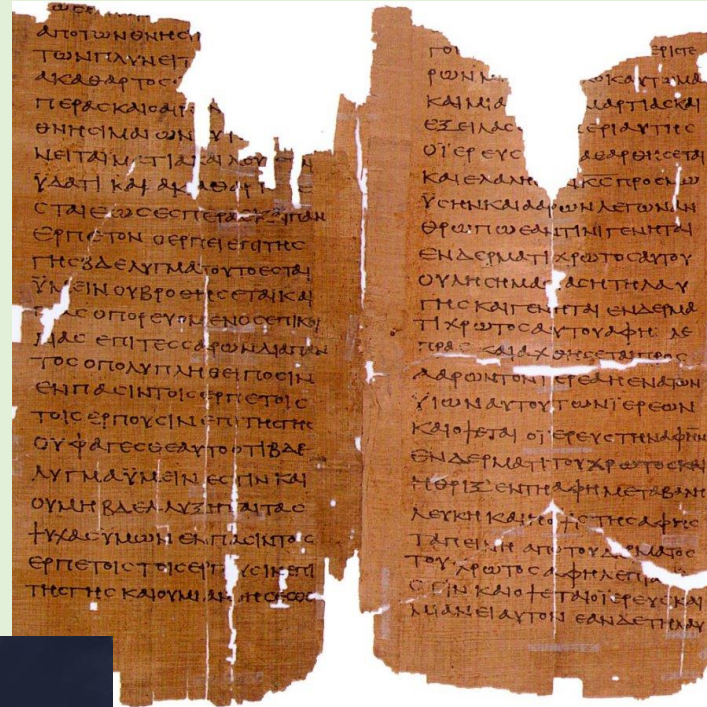 ΑΠΟΤΩΝΘΝΗΣΙ
ΤΩΝΠΛΥΝΕΙΤ
ΑΚΑΘΑΡΤΟΣ
ΠΕΡΑΣΚΑΙΟΑΙΡ
ΘΝΗΣΙΜΑΙΩΝ
ΝΕΙΤΑΙ ΤΙΑΚΑΙΛΟΥ
ΫΔΑΤΙ ΚΑΙ ΑΚΑΘΑΡ
ΣΤΑΙ ΕΩΣ ΕΣΠΕΡΑΣ ΠΑΝ
ΕΡΠΕΤΟΝ Ο ΕΡΠΕΙ ΕΠΙ ΤΗΣ
ΓΗΣ ΒΔΕΛΥΓΜΑ ΤΟΥΤΟ ΕΣΤΑΙ
ΫΜΕΙΝ ΟΥ ΒΡΩΘΗΣΕΤΑΙ ΚΑΙ
ΑΣ Ο ΠΟΡΕΥΟΜΕΝΟΣ ΕΠΙ ΚΟΙ
ΛΙΑΣ ΕΠΙ ΤΕΣΣΑΡΩΝ ΔΙΑ ΠΑΝ
ΤΟΣ Ο ΠΟΛΥΠΛΗΘΕΙ ΠΟΣΙΝ
ΕΝ ΠΑΣΙΝ ΤΟΙΣ ΕΡΠΕΤΟΙΣ
ΤΟΙΣ ΕΡΠΟΥΣΙΝ ΕΠΙ ΤΗΣ ΓΗΣ
ΟΥ ΦΑΓΕΣΘΕ ΑΥΤΟ ΟΤΙ ΒΔΕ
ΛΥΓΜΑ ΫΜΕΙΝ ΕΣΤΙΝ ΚΑΙ
ΟΥ ΜΗ ΒΔΕΛΛΥΞΗΤΑΙ ΤΑΣ
ΨΥΧΑΣ ΫΜΩΝ ΕΝ ΠΑΣΙΝ ΤΟΙΣ
ΕΡΠΕΤΟΙΣ ΤΟΙΣ ΕΡΠ ΥΣΙΝ ΕΠΙ
ΤΗΣ ΓΗΣ ΚΑΙ ΟΥ ΜΙΑΝ ΗΣΕΣΘΕ
ΓΟΙ ΕΡΙΣΤΕ
ΡΩΝ
ΚΑΙ ΜΙΑ ΜΑΡΤΙΑΣ ΚΑΙ
ΕΞΕΙΛΑΣ ΕΡΙ ΑΥΤΗΣ
Ο ΪΕΡΕΥΣ ΑΘΑΡΘΗΣΕΤΑΙ
ΚΑΙ ΕΛΑΛΗ ΚΣ ΠΡΟΣ ΜΩ
ΫΣΗΝ ΚΑΙ ΑΑΡΩΝ ΛΕΓΩΝ ΑΝ
ΘΡΩΠΩ ΕΑΝ ΤΙΝΙ ΓΕΝΗΤΑΙ
ΕΝ ΔΕΡΜΑΤΙ ΧΡΩΤΟΣ ΑΥΤΟΥ
ΟΥΛΗ ΣΗΜΑΣΙΑΣ Η ΤΗΛΑΥ
ΓΗΣ ΚΑΙ ΓΕΝΗΤΑΙ ΕΝ ΔΕΡΜΑ
ΤΙ ΧΡΩΤΟΣ ΑΥΤΟΥ ΑΦΗ ΛΕ
ΠΡΑΣ ΚΑΙ ΑΧΘΗΣΕΤΑΙ ΠΡΟΣ
ΑΑΡΩΝ ΤΟΝ ΪΕΡΕΑ Η ΕΝΑ ΤΩΝ
ΫΙΩΝ ΑΥΤΟΥ ΤΩΝ ΪΕΡΕΩΝ
ΚΑΙ ΟΨΕΤΑΙ Ο ΪΕΡΕΥΣ ΤΗΝ ΑΦΗΝ
ΕΝ ΔΕΡΜΑΤΙ ΤΟΥ ΧΡΩΤΟΣ ΚΑΙ
Η ΘΡΙΞ ΕΝ ΤΗ ΑΦΗ ΜΕΤΑΒΑΛΗ
ΛΕΥΚΗ ΚΑΙ Η ΟΨΙΣ ΤΗΣ ΑΦΗΣ
ΤΑΠΕΙΝΗ ΑΠΟ ΤΟΥ ΔΕΡΜΑΤΟΣ
ΤΟΥ ΧΡΩΤΟΣ ΑΦΗ ΛΕΠΡΑ
Σ ΕΣΤΙΝ ΚΑΙ ΟΨΕΤΑΙ Ο ΪΕΡΕΥΣ ΚΑΙ
ΜΙΑΝΕΙ ΑΥΤΟΝ ΕΑΝ ΔΕ ΤΗΛΑΥ